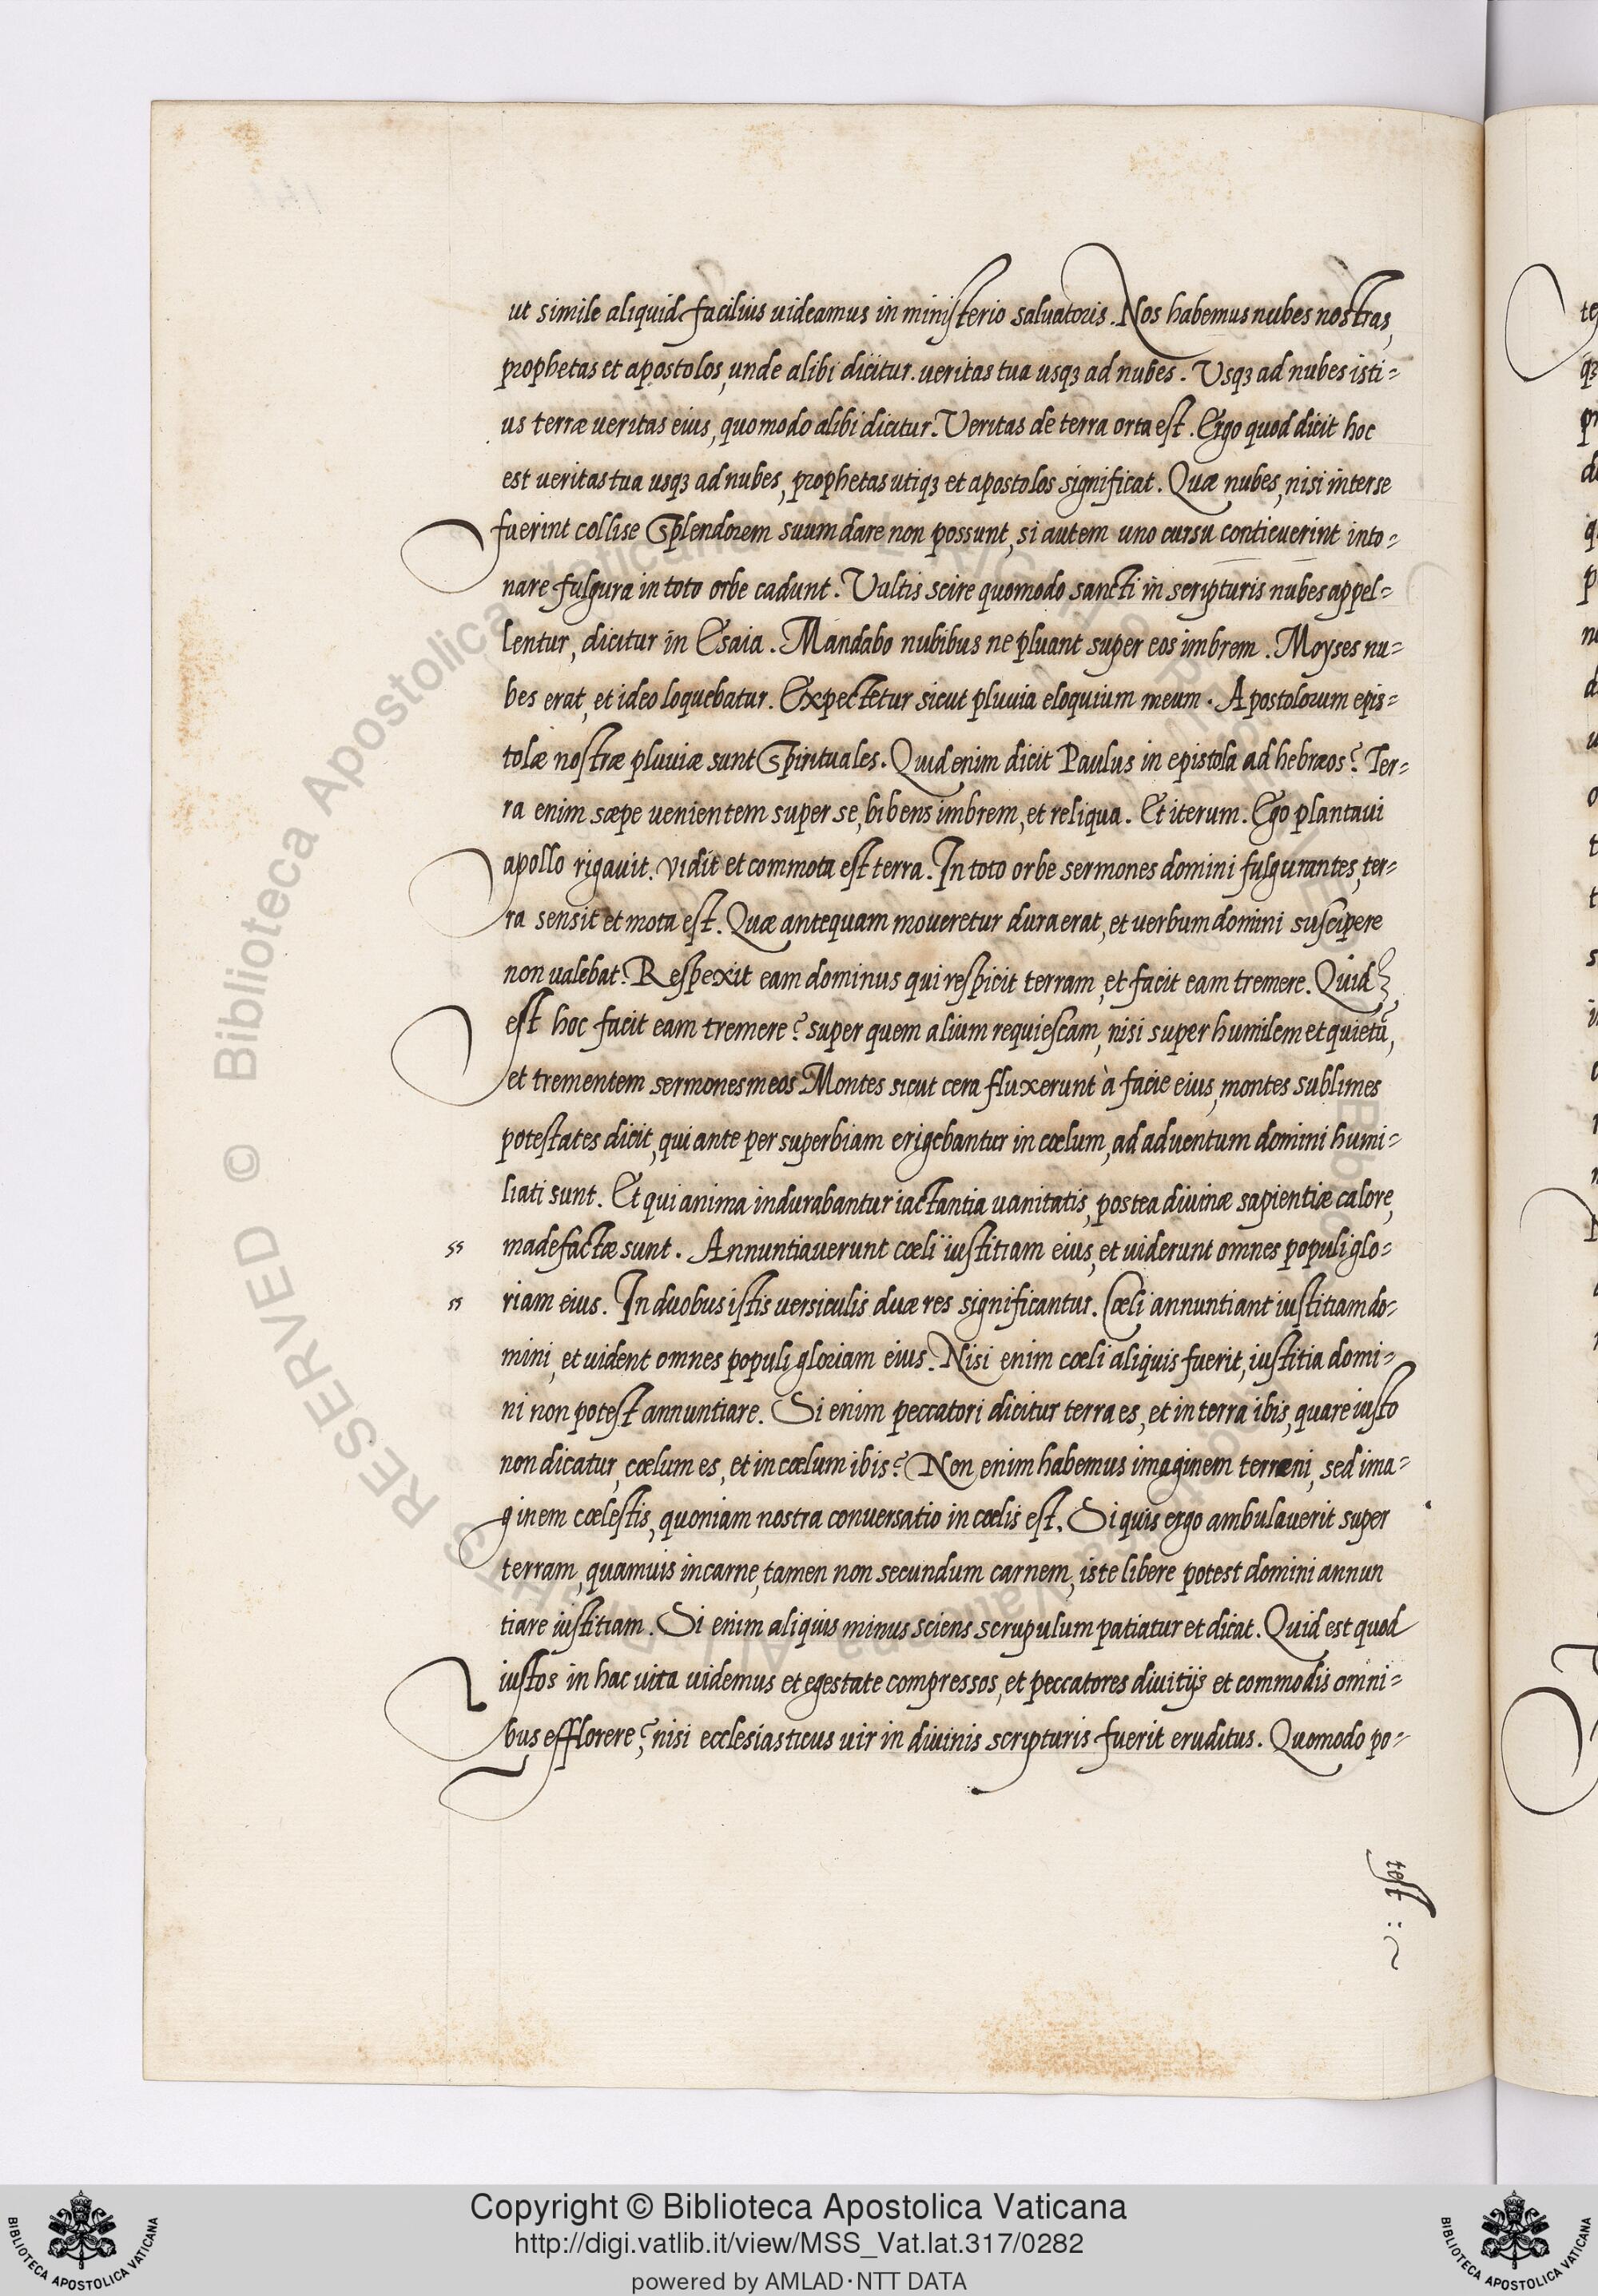 ut simile aliquid facilius uideamus in ministerio saluatoris. Nos habemus nubes nostras,
prophetas et apostolos, unde alibi dicitur. ueritas tua usqꝫ ad nubes. Usqꝫ ad nubes isti=
us terræ ueritas eius, quomodo alibi dicitur. Veritas de terra orta est. Ergo quod dicit hoc
est ueritas tua usqꝫ ad nubes, prophetas utiqꝫ et apostolos significat. Quæ nubes, nisi interse
fuerint collise Splendorem suum dare non possunt, si autem uno cursu contieuerint into=
nare fulgura in toto orbe cadunt. Vultis scire quomodo sancti in scripturis nubes appel=
lentur, dicitur in Esaia. Mandabo nubibus ne pluant super eos imbrem. Moyses nu=
bes erat, et ideo loquebatur. Expectetur sicut pluuia eloquium meum. Apostolorum epis=
tolæ nostræ pluuiæ sunt Spirituales. Quid enim dicit Paulus in epistola ad hebræos? Ter=
ra enim sæpe uenientem super se, bibens imbrem, et reliqua. Et iterum. Ego plantaui
apollo rigauit. vidit et commota est terra. In toto orbe sermones domini fulgurantes, ter=
ra sensit et mota est. Quæ antequam moueretur dura erat, et uerbum domini suscipere
non ualebat. Respexit eam dominus qui respicit terram, et facit eam tremere. Quid
est hoc facit eam tremere? super quem alium requiescam, nisi super humilem et quietũ,
et trementem sermones meos Montes sicut cera fluxerunt à facie eius, montes sublimes
potestates dicit, qui ante per superbiam erigebantur in cœlum, ad aduentum domini humi=
liati sunt. Et qui anima indurabantur iactantia uanitatis, postea diuinæ sapientiæ calore,
ss madefactæ sunt. Annuntiauerunt cœli iustitiam eius, et uiderunt omnes populi glo=
ss riam eius. In duobus istis uersiculis duæ res significantur. Cœli annuntiant iustitiam do=
mini, et uident omnes populi gloriam eius. Nisi enim cœli aliquis fuerit, iustitia domi=
ni non potest annuntiare. Si enim peccatori dicitur terra es, et in terra ibis, quare iusto
non dicatur, cœlum es, et in cœlum ibis? Non enim habemus imaginem terræni, sed ima=
ginem cœlestis, quoniam nostra conuersatio in cœlis est. Si quis ergo ambulauerit super
terram, quamuis in carne, tamen non secundum carnem, iste libere potest domini annun
tiare iustitiam. Si enim aliquis minus sciens scrupulum patiatur et dicat. Quid est quod
iustos in hac uita uidemus et egestate compressos, et peccatores diuitijs et commodis omni=
bus efflorere? nisi ecclesiasticus uir in diuinis scripturis fuerit eruditus. Quomodo po=
test
© Biblioteca Apostolica Vaticana
RESERVED
Copyright © Biblioteca Apostolica Vaticana
http://digi.vatlib.it/view/MSS_Vat.lat.317/0282
powered by AMLAD·NTT DATA
BIBLIOTECA APOSTOLICA VATICANA
BIBLIOTECA APOSTOLICA VATICANA